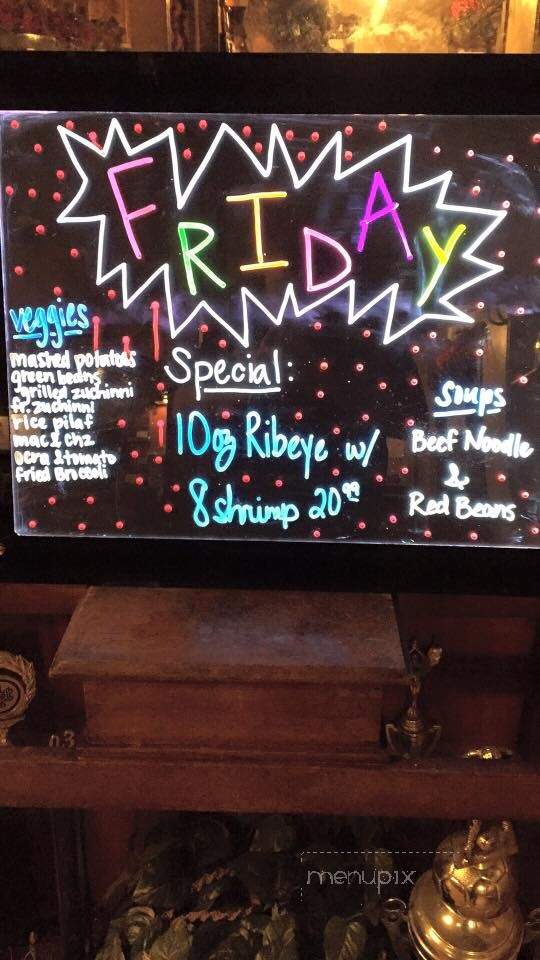 FRIDAY
veggies
mashed potatoes
green beans
grilled zuchinni
fr. zuchinni
rice pilaf
mac & chz
ocra & tomato
fried Broccoli
Special:
10oz Ribeye w/
8 shrimp 20.99
Soups
Beef Noodle
&
Red Beans
03
menupix